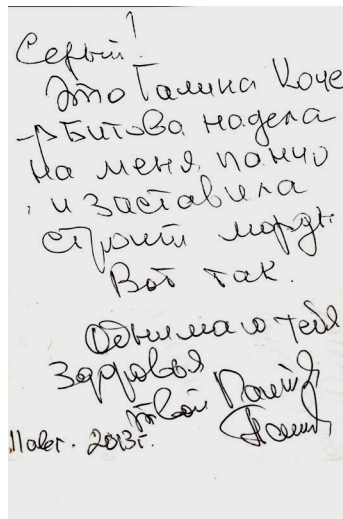 Серый!
Это Галина Коче
рбитова надела
на меня пончо
и заставила
строит морды
Вот так.
Обнимаю тебя
Здоровья
твой
11 авг. 2013г.